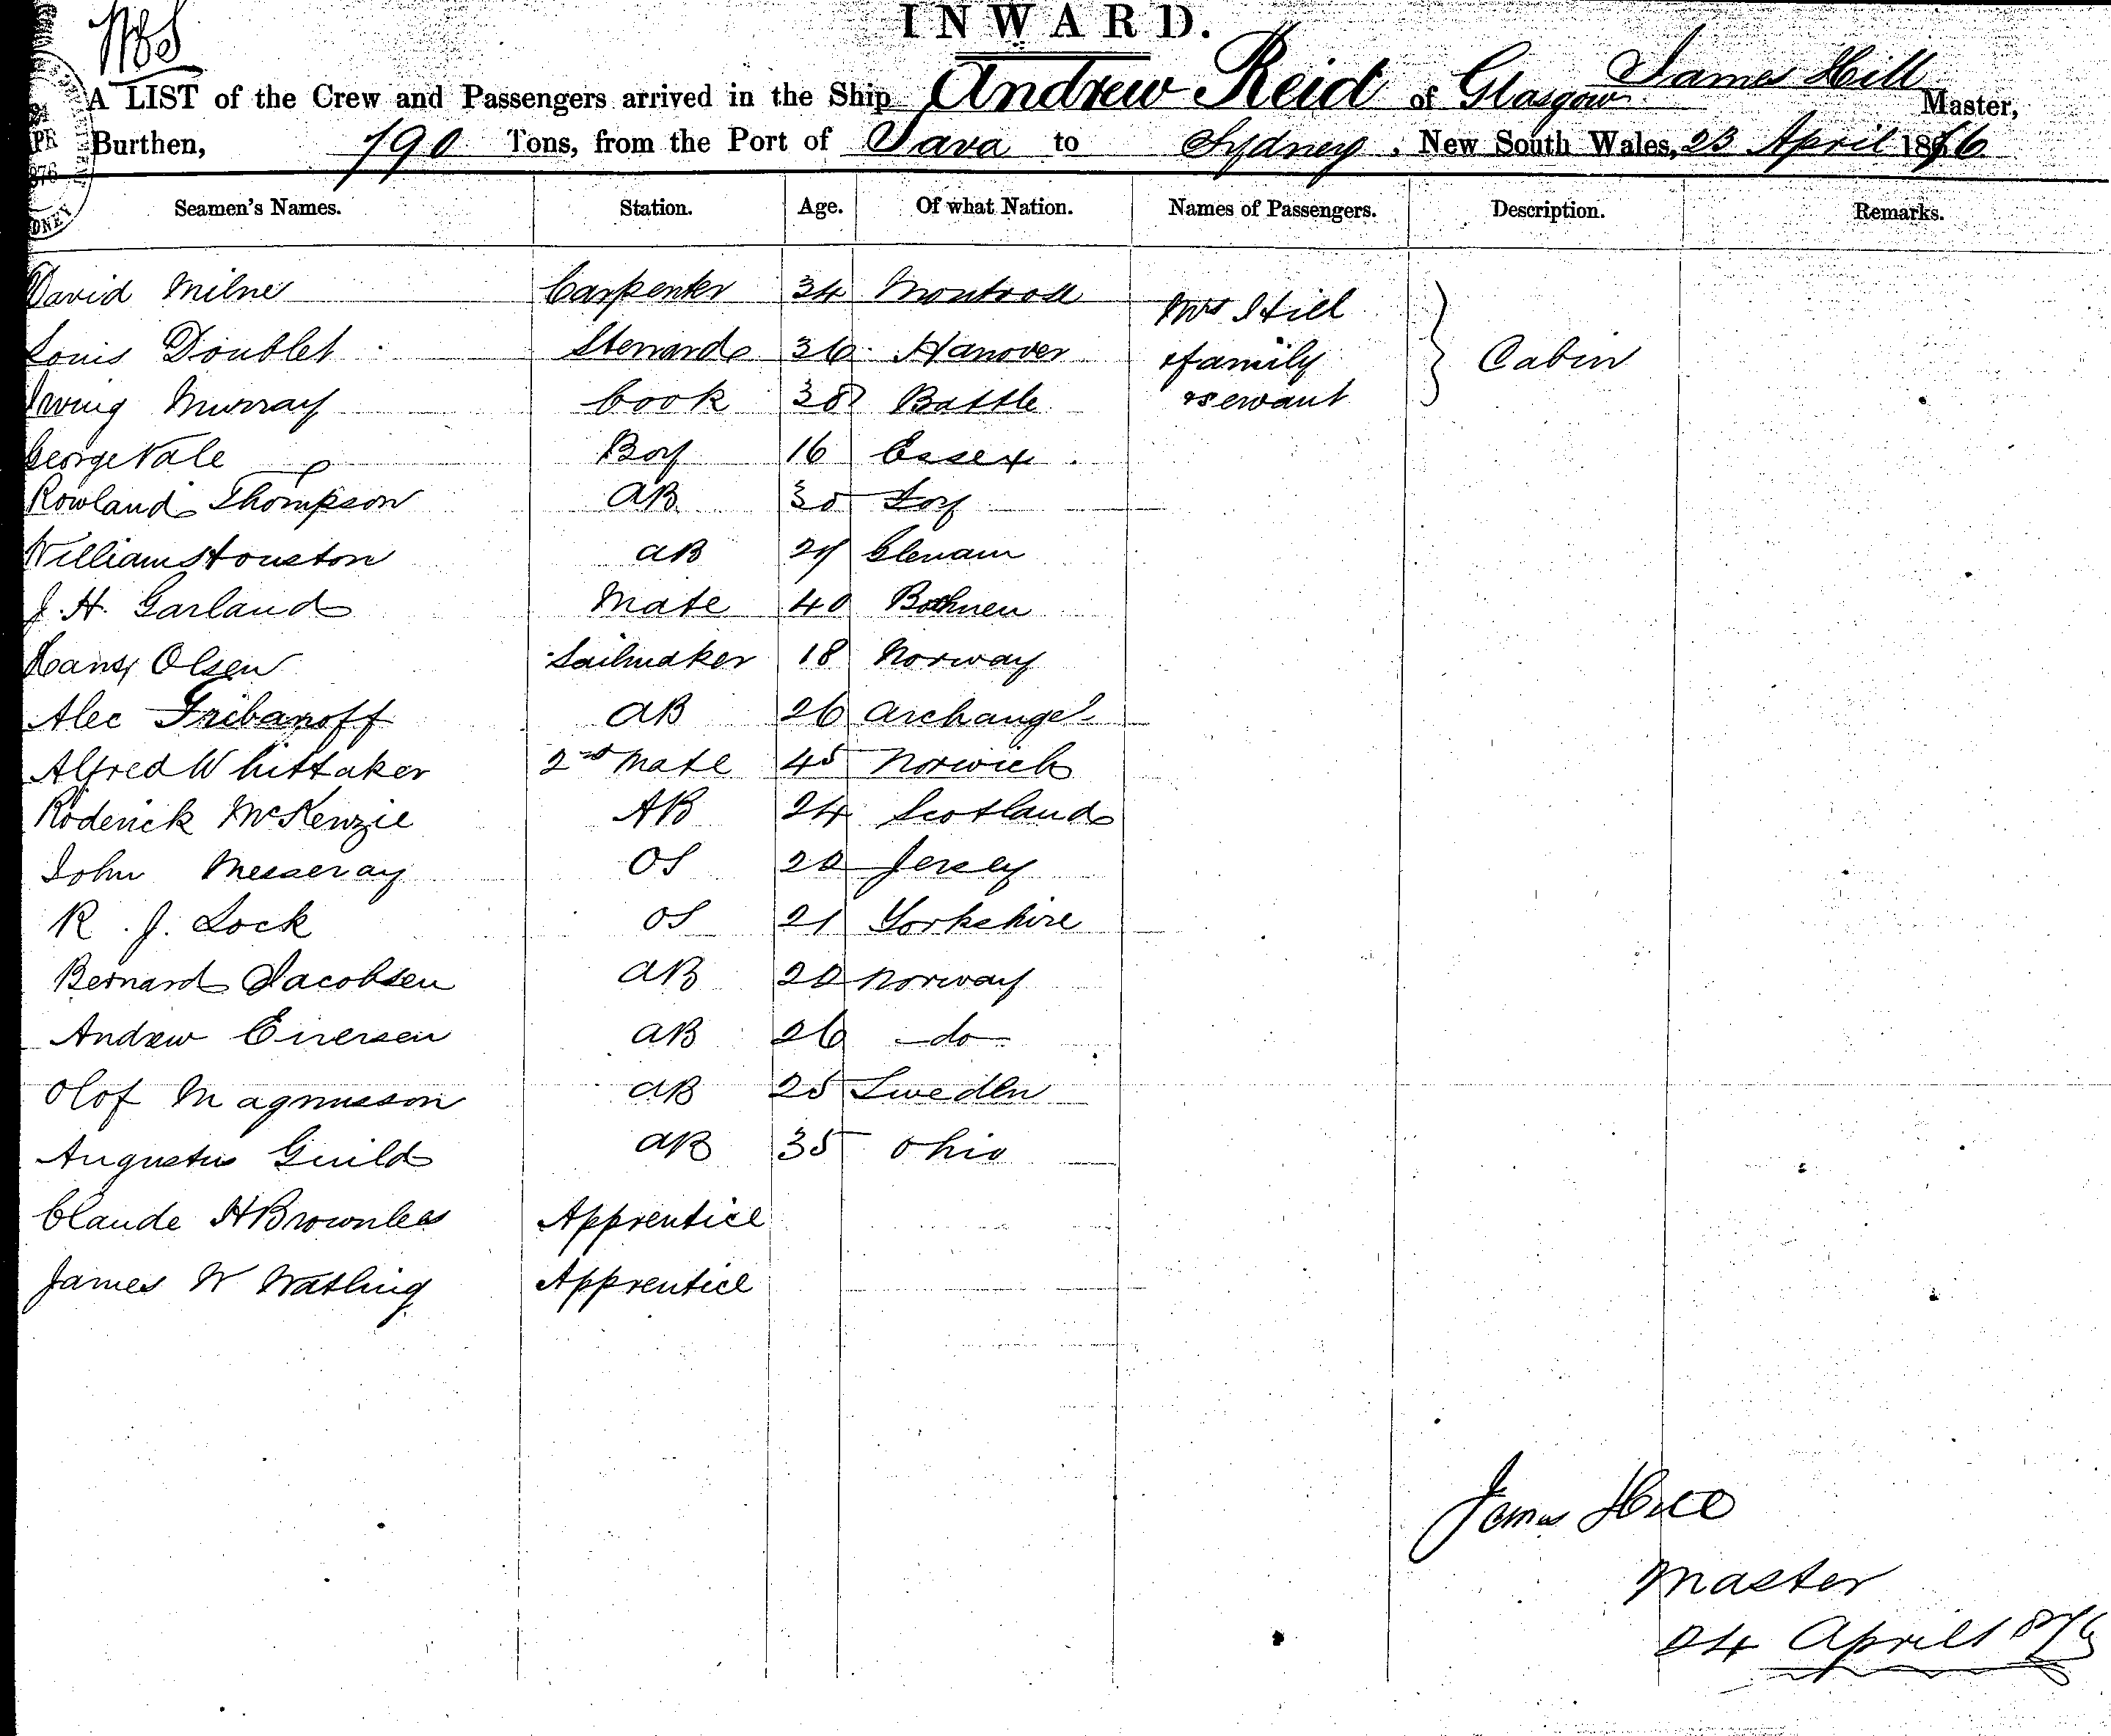 INWARD.
A LIST of the Crew and Passengers arrived in the Ship Andrew Reid of Glasgow James Hill Master,
Burthen, 790 Tons, from the Port of Java to Sydney, New South Wales, 23 April 1876
Seamen's Names. Station. Age. Of what Nation. Names of Passengers. Description. Remarks.
David Milne Carpenter 34 Montrose Mrs Hill
Louis Doublet Steward 36 Hanover & family Cabin
Irving Murray Cook 38 Battle & servant
George Vale Boy 16 Essex
Rowland Thompson AB 30
William Houston AB 27 Glenarm
J. H. Garland Mate 40
Hans Olsen Sailmaker 18 Norway
Alec Gribanoff AB 26 Archangel
Alfred Whittaker 2nd Mate 45 Norwich
Roderick McKenzie AB 24 Scotland
John Messeray OS 20 Jersey
R. J. Lock OS 21 Yorkshire
Bernard Jacobsen AB 20 Norway
Andrew Eiversen AB 26 do
Olof Magnusson AB 25 Sweden
Augustus Guild AB 35 Ohio
Claude H Brownlees Apprentice
James W Watling Apprentice
James Hill
Master
24 April 1876